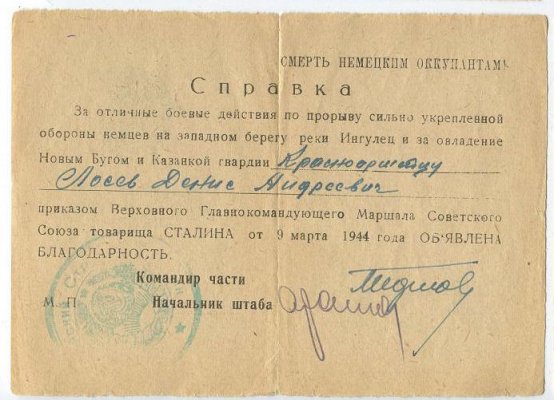 СМЕРТЬ НЕМЕЦКИМ ОККУПАНТАМ
Справка
За отличные боевые действия по прорыву сильно укрепленной
обороны немцев на западном берегу реки Ингулец и за овладение
Новым Бугом и Казанкой гвардии Красноармейцу
Лосев Денис Андреевич
приказом Верховного Главнокомандующего Маршала Советского
Союза товарища СТАЛИНА от 9 марта 1944 года ОБ'ЯВЛЕНА
БЛАГОДАРНОСТЬ.
Командир части
М. П. Начальник штаба